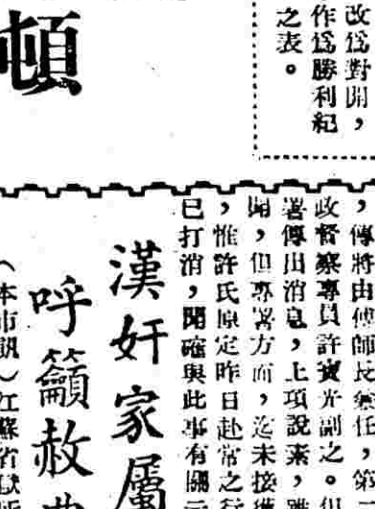 改爲對開，
作爲勝利紀
之表。
頓
，傳將由傅師長兼任，第
政督察專員許寶光副之。但
署傳出消息，上項說素，雖
聞，但專署方面，迄未接獲
，惟許氏原定昨日赴常之行
已打消，聞確與此事有關云
漢奸家屬
呼籲赦典
（本市訊）江蘇省獄所